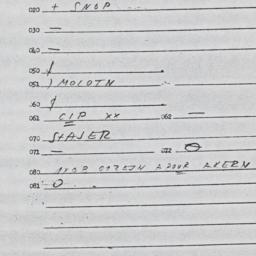 020 + SNOP
030 —
040 —
050
051 ) MOLOTN
060
061 CIP xx 062 —
070 StAJER
071 — 072 ⊖
080
081 O